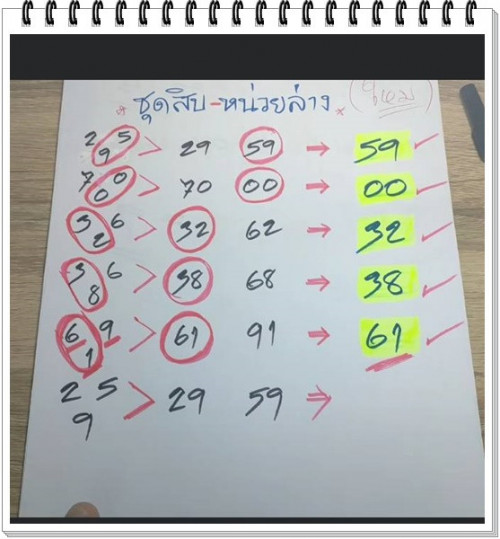 ชุดสิบ-หน่วยล่าง
2 5 > 29 59 → 59
9
7 0 > 70 00 → 00
0
3 6 > 32 62 → 32
2
3 6 > 38 68 → 38
8
6 9 > 61 91 → 61
1
2 5 > 29 59 ⇒
9